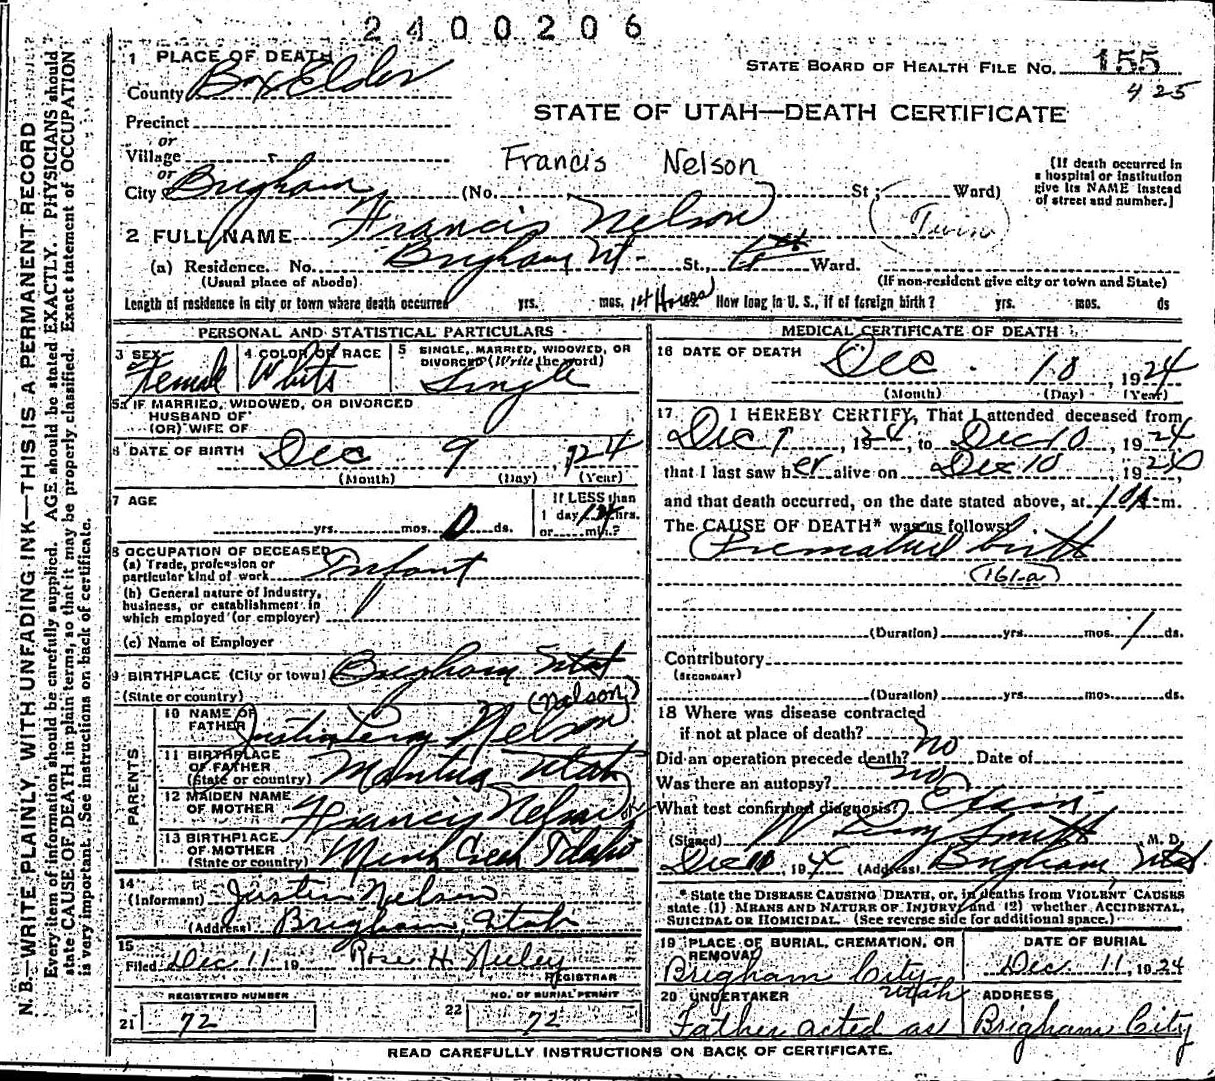 2400206
1 PLACE OF DEATH
STATE BOARD OF HEALTH FILE NO. 155
425
County Box Elder
STATE OF UTAH—DEATH CERTIFICATE
Precinct
or
Village
or
Francis Nelson
(If death occurred in a hospital or institution give its NAME instead of street and number.]
City Brigham (No. St; Ward)
2 FULL NAME Francis Nelson (Twin)
(a) Residence. No. Brigham Ut. St., Ward.
(Usual place of abode) (If non-resident give city or town and State)
Length of residence in city or town where death occurred yrs. mos. How long in U. S., if of foreign birth? yrs. mos. ds
PERSONAL AND STATISTICAL PARTICULARS
3 SEX Female
4 COLOR OR RACE White
5 SINGLE, MARRIED, WIDOWED, OR DIVORCED (Write the word) Single
5a IF MARRIED, WIDOWED, OR DIVORCED
HUSBAND OF
(OR) WIFE OF
6 DATE OF BIRTH Dec 9, 1924
(Month) (Day) (Year)
7 AGE yrs. mos. 0 ds.
If LESS than
1 day 14 hrs.
or min.?
8 OCCUPATION OF DECEASED
(a) Trade, profession or
particular kind of work Infant
(b) General nature of Industry,
business, or establishment in
which employed (or employer)
(c) Name of Employer
9 BIRTHPLACE (City or town) Brigham Utah
(State or country) (Nelson)
PARENTS
10 NAME OF
FATHER Justin Leroy Nelson
11 BIRTHPLACE
OF FATHER
(State or country) Mantua Utah
12 MAIDEN NAME
OF MOTHER Francis Nelson
13 BIRTHPLACE
OF MOTHER
(State or country) Mink Creek Idaho
14
(Informant) Justin Nelson
(Address) Brigham, Utah
15
Filed Dec 11 19 Rose H. Neeley
REGISTRAR
REGISTERED NUMBER
21 72
NO. OF BURIAL PERMIT
22 72
MEDICAL CERTIFICATE OF DEATH
16 DATE OF DEATH Dec. 10, 1924
(Month) (Day) (Year)
17. I HEREBY CERTIFY, That I attended deceased from
Dec 9, 1924, to Dec 10, 1924
that I last saw her alive on Dec 10, 1924,
and that death occurred, on the date stated above, at 10A m.
The CAUSE OF DEATH* was as follows:
Premature birth
(161-a)
(Duration) yrs. mos. 1 ds.
Contributory
(SECONDARY)
(Duration) yrs. mos. ds.
18 Where was disease contracted
if not at place of death?
Did an operation precede death? no Date of
Was there an autopsy? no
What test confirmed diagnosis? Exam
(Signed) W Leroy Smith M. D.
Dec 10, 1924 (Address) Brigham, Utah
* State the DISEASE CAUSING DEATH, or, in deaths from VIOLENT CAUSES
state (1) MEANS AND NATURE OF INJURY, and (2) whether ACCIDENTAL,
SUICIDAL OR HOMICIDAL. (See reverse side for additional space.)
19 PLACE OF BURIAL, CREMATION, OR
REMOVAL
Brigham City Utah
DATE OF BURIAL
Dec. 11, 1924
20 UNDERTAKER
Father acted as
ADDRESS
Brigham City
READ CAREFULLY INSTRUCTIONS ON BACK OF CERTIFICATE.
N. B.—WRITE PLAINLY WITH UNFADING INK—THIS IS A PERMANENT RECORD
Every item of information should be carefully supplied. AGE should be stated EXACTLY. PHYSICIANS should
state CAUSE OF DEATH in plain terms, so that it may be properly classified. Exact statement of OCCUPATION
is very important. See instructions on back of certificate.